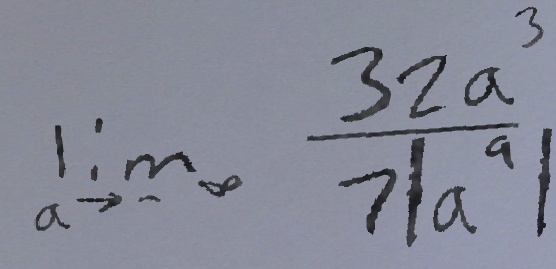 \lim_{a \to -\infty} \frac{32a^3}{7|a^9|}